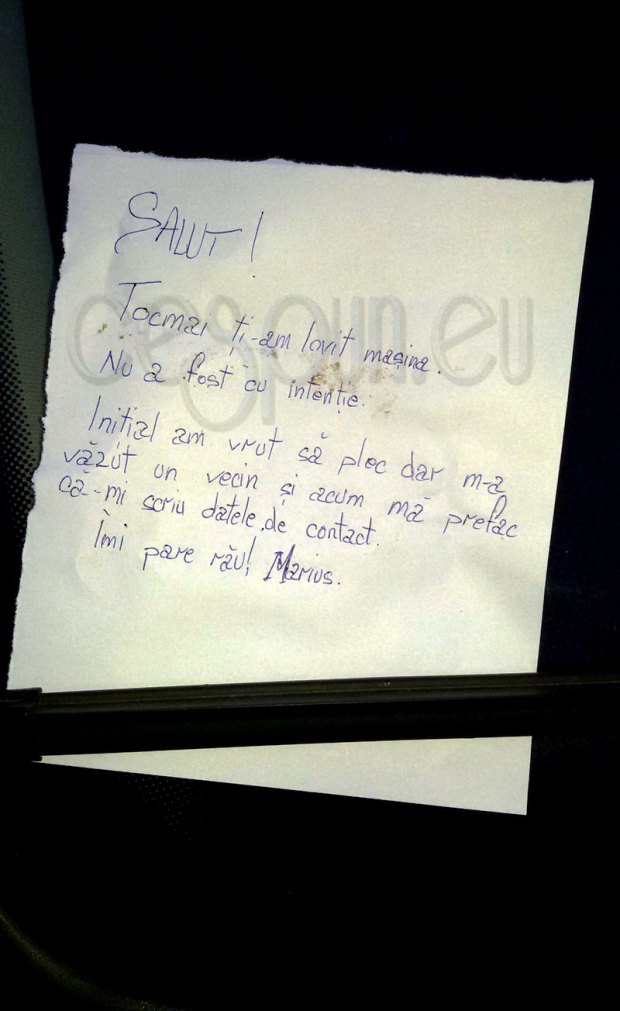 SALUT!
Tocmai ți-am lovit mașina.
Nu a fost cu intenție.
Inițial am vrut să plec dar m-a
văzut un vecin și acum mă prefac
că-mi scriu datele de contact.
Îmi pare rău! Marius.
cespun.eu